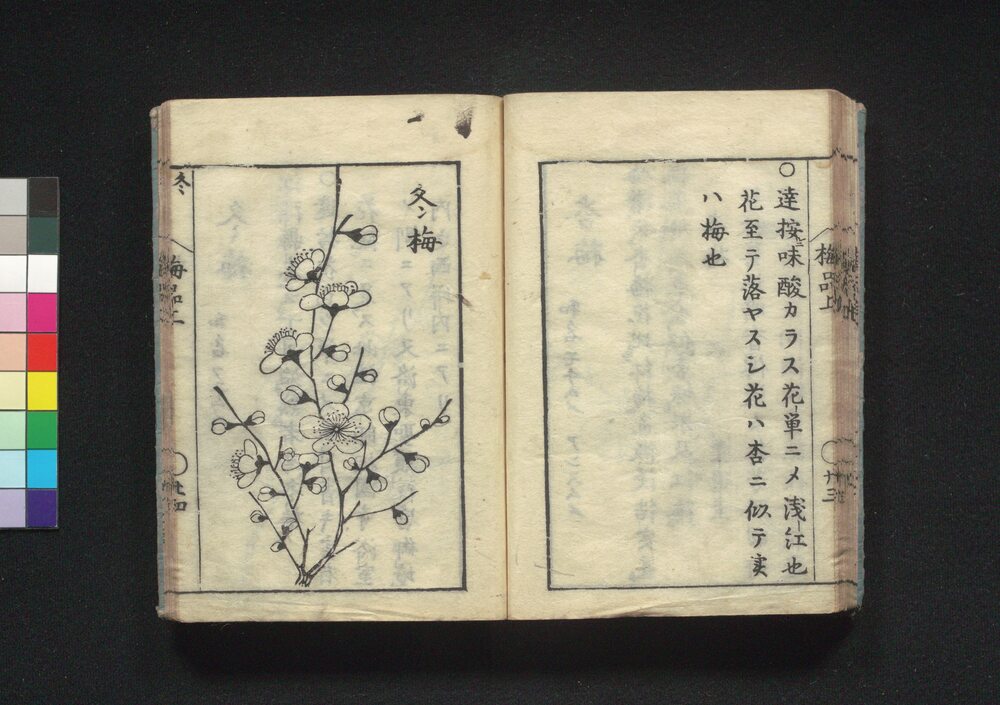 ○達按味酸カラス花単ニメ浅紅也
花至テ落ヤスシ花ハ杏ニ似テ実
ハ梅也
梅品上
十三
冬ン梅
冬
梅品上
十四